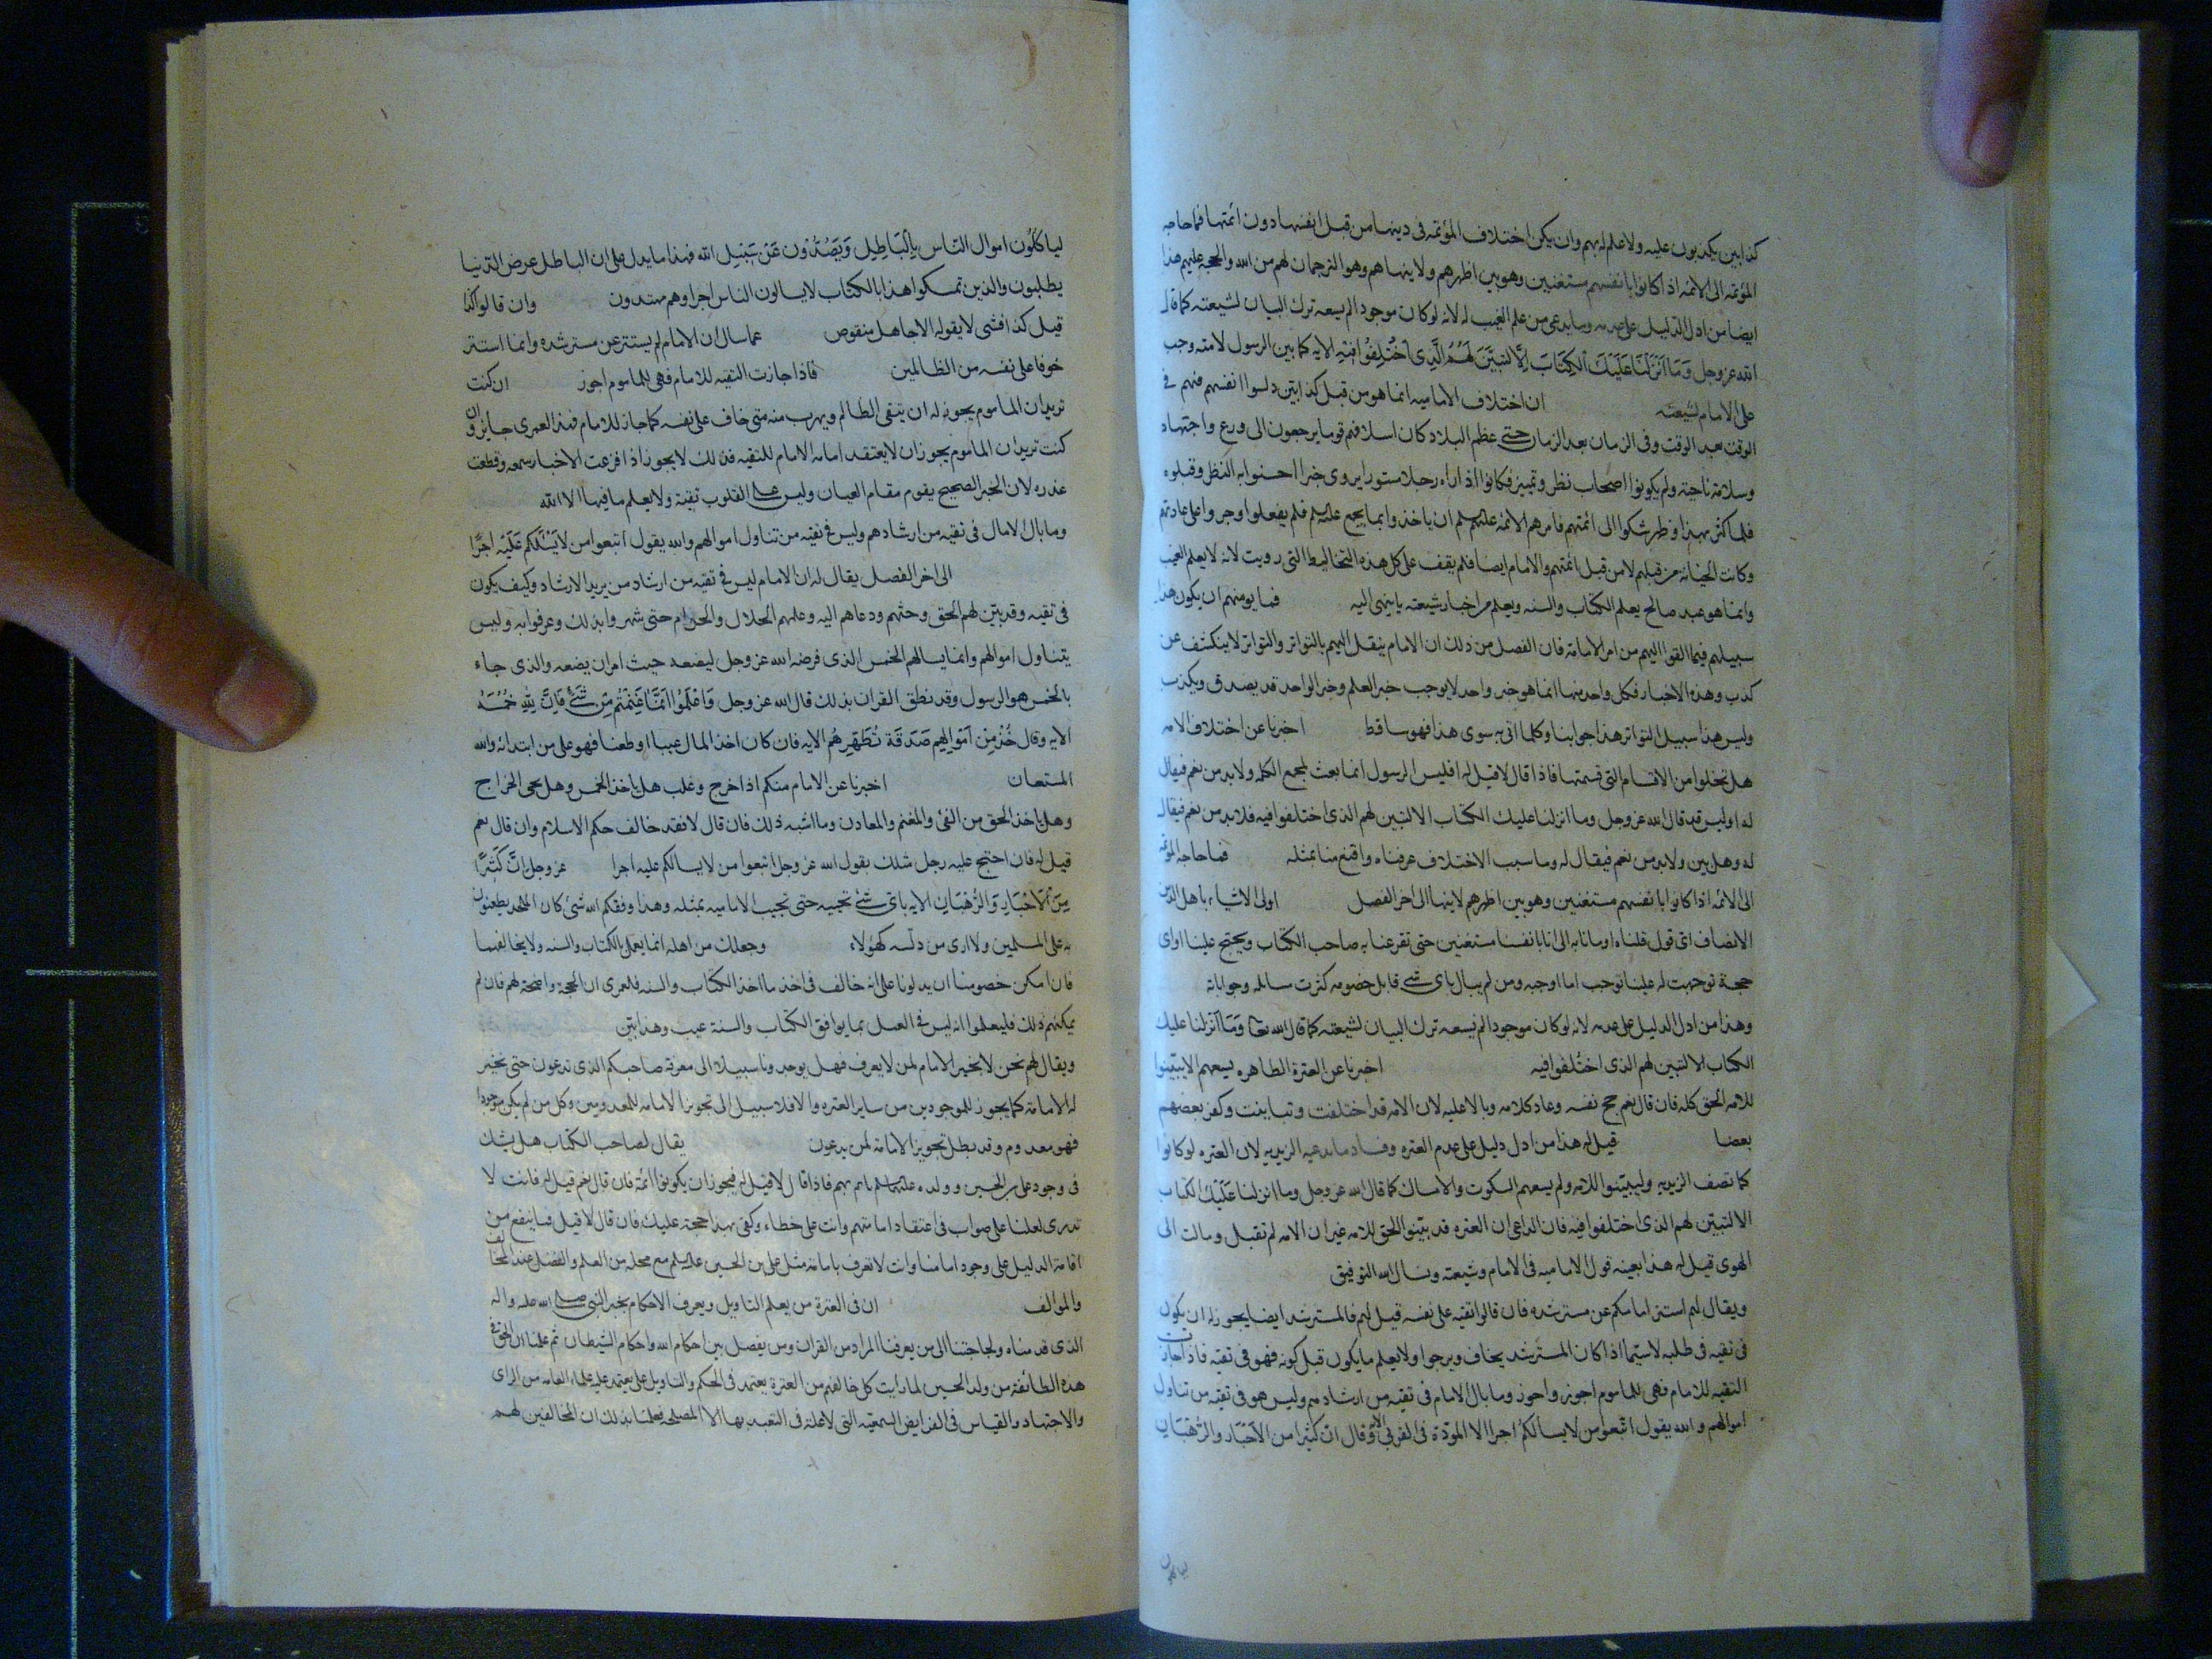 كذابين يكذبون عليه ولا علم له بهم وان يكن اختلاف المؤتمه فى دينها من قبل انفسها دون ائمتها فما حاجه
المؤتمه الى الائمه اذا كانوا بانفسهم مستغنين وهو بين اظهرهم ولا ينهاهم وهو الترجمان لهم من الله والحجه عليهم هذا
ايضا من ادل الدليل على عدمه وما يدعى من علم الغيب له لانه لو كان موجودا لم يسعه ترك البيان لشيعته كما قال
الله عز وجل وَمَا اَنْزَلْنَا عَلَيْكَ الْكِتَابَ اِلَّا لِتُبَيِّنَ لَهُمُ الَّذِى اخْتَلَفُوا فِيْهِ الايه كما بين الرسول لامته وجب
على الامام لشيعته ان اختلاف الاماميه انما هو من قبل كذابين دلسوا انفسهم فيهم فى
الوقت بعد الوقت وفى الزمان بعد الزمان حتى عظم البلاء وكان اسلافهم قوما يرجعون الى ورع واجتهاد
وسلامة ناحية ولم يكونوا اصحاب نظر وتمييز فكانوا اذا راوا رجلا مستورا يروى خبرا احسنوا به الظن وقبلوه
فلما كثر هذا وظهر شكوا الى ائمتهم فامرهم الائمه عليهم السلم ان ياخذوا بما يجمع عليه فلم يفعلوا وجروا على عادتهم
وكانت الخيانة من قبلهم لا من قبل ائمتهم والامام ايضا لم يقف على كل هذه التخاليط التى رويت لانه لا يعلم الغيب
وانما هو عبد صالح يعلم الكتاب والسنه ويعلم من اخبار شيعته ما ينهى اليه فما يومنهم ان يكون هذا
سبيلهم فيما القوا اليهم من امر الامامة فان الفصل من ذلك ان الامام ينقل اليهم بالتواتر والتواتر لا ينكشف عن
كذب وهذه الاخبار فكل واحد منها انما هو خبر واحد لا يوجب خبره العلم وخبر الواحد قد يصدق ويكذب
وليس هذا سبيل التواتر هذا جوابنا وكلما اتى به سوى هذا فهو ساقط اخبرنا عن اختلاف الامه
هل تخلوا من الاقسام التى قسمتها فاذا قال لا قيل له افليس الرسول انما بعث لجمع الكلمه ولا بد من نعم فيقال
له اوليس قد قال الله عز وجل وما انزلنا عليك الكتاب الا لتبين لهم الذى اختلفوا فيه فلا بد من نعم فيقال
له وهل بين ولا بد من نعم فيقال له وما سبب الاختلاف عرفناه واقنع منا بمثله فما حاجه المؤتمه
الى الائمه اذا كانوا بانفسهم مستغنين وهو بين اظهرهم لا ينها الى اخر الفصل اولى الاشياء باهل الدين
الانصاف اى قول قلناه اومانا به الى انا بانفسنا مستغنين حتى تقرعنا به صاحب الكتاب ويحتج علينا او اى
حجة توجهت له علينا توجب اما اوجبه ومن لم يبال باى شى قابل خصومه كثرت مسائله وجواباته
وهذا من ادل الدليل على عدمه لانه لو كان موجودا لم يسعه ترك البيان لشيعته كما قال الله تعا وَمَا اَنْزَلنا عليك
الكتاب الا لتبين لهم الذى اختلفوا فيه اخبرنا عن العترة الطاهره يسعهم لا يبينوا
للامه الحق كله فان قال نعم حج نفسه وعاد كلامه وبالا عليه لان الامه قد اختلفت وتباينت وكفر بعضهم
بعضا قيل له هذا من ادل دليل على عدم العتره وفساد ما يدعيه الزيديه لان العتره لو كانوا
كما تصف الزيديه ليبينوا للامه ولم يسعهم السكوت والامساك كما قال الله عز وجل وما انزلنا عَلَيْكَ الكتاب
الا لتبين لهم الذى اختلفوا فيه فان ادعى ان العتره قد بينوا الحق للامه غير ان الامه لم تقبل ومالت الى
الهوى قيل له هذا بعينه قول الاماميه فى الامام وشيعته ونسال الله التوفيق
ويقال لهم استتر امامكم عن مسترشده فان قالوا تقيه على نفسه قيل لهم فالمسترشد ايضا يجوز له ان يكون
فى تقيه فى طلبه لا سيما اذا كان المسترشد يخاف ويرجوا ولا يعلم ما يكون قبل كونه فهو فى تقيه فاذا جازت
التقيه للامام فهى للماموم اجوز واجوز وما بال الامام فى تقيه من ارشادهم وليس هو فى تقيه من تناول
اموالهم والله يقول اتبعوا من لا يسالكم اجرا الا المودّة فى القربى الايه وقال ان كثيرا من الاَحْبَار والرُّهْبَانِ
ليا كلون
ليا كلُون اموال الناس بِالْبَاطِلِ وَيَصُدُّوْن عَنْ سَبِيْلِ الله فهذا ما يدل على ان الباطل عرض الدنيا
يطلبون والذين تمسكوا هذا بالكتاب لا يسالون الناس اجرا وهم مهتدون وان قالوا كذا
قيل كذا فشى لا يقوله الا جاهل منقوص عما سال ان الامام لم يستتر عن مسترشده وانما استتر
خوفا على نفسه من الظالمين فاذا جازت التقيه للامام فهى للماموم اجوز ان كنت
تريد ان الماموم يجوز له ان يتقى الظالم ويهرب منه متى خاف على نفسه كما جاز للامام فهذا لعمرى جايز وان
كنت تريد ان الماموم يجوز ان لا يعتقد امامه الامام للتقيه فذلك لا يجوز اذا قرعت الاخبار سمعه وقطعت
عذره لان الخبر الصحيح يقوم مقام العيان وليس على القلوب تقية ولا يعلم ما فيها الا الله
وما بال الامام فى تقيه من ارشادهم وليس فى تقيه من تناول اموالهم والله يقول اتبعوا من لا يَسْئَلُكم عَلَيْهِ اَجْرًا
الى اخر الفصل يقال له ان الامام ليس فى تقيه من ارشاد من يريد الارشاد وكيف يكون
فى تقيه وقد بيّن لهم الحق وحثهم ودعاهم اليه وعلمهم الحلال والحرام حتى شهروا بذلك وعرفوا به وليس
يتناول اموالهم وانما يسالهم الخمس الذى فرضه الله عز وجل ليضعه حيث امر ان يضعه والذى جاء
بالخمس هو الرسول وقد نطق القران بذلك قال الله عز وجل وَاعْلَمُوْا اَنَّمَا غَنِمْتُمْ مِنْ شَىْءٍ فَاِنَّ لِلّٰهِ خُمُسَهُ
الايه وقال خُذْ مِن اَمْوَالِهِمْ صَدَقَةً تُطَهِّرهُم الايه فان كان اخذ المال عيبا او طعنا فهو على من ابتدائه والله
المستعان اخبرنا عن الامام منكم اذا خرج وغلب هل ياخذ الخمس وهل يجبى الخراج
وهل ياخذ الحق من الفئ والمغنم والمعادن وما اشبه ذلك فان قال لا فقد خالف حكم الاسلام وان قال نعم
قيل له فان احتج عليه رجل مثلك بقول الله عز وجل اتبعوا من لا يسالكم عليه اجرا عز وجل انَّ كَثيْرًا
مِنَ الْاَحْبَارِ وَالرُّهْبَانِ الايه باى شى تجيبه حتى تجيب الاماميه بمثله وهذا وفقكم الله شئ كان الملحد يطعنون
به على المسلمين ولا ارى من دلّسه كهؤلاء وجعلك من اهله انما يعمل بالكتاب والسنه ولا يخالفهما
فان امكن خصومنا ان يدلونا على انه خالف فى اخذ ما اخذ الكتاب والسنه فلعمرى ان الحجة واضحة لهم فان لم
يمكنهم ذلك فليعلموا انه ليس فى العمل بما يوافق الكتاب والسنة عيب وهذا بيّن
ويقال لهم نحن لا نجيز الامام لمن لا يعرف فهل يوجدونا سبيلا الى معرفة صاحبكم الذى تدعون حتى نجيز
له الامامة كما يجوز للموجودين من ساير العتره والا فلا سبيل الى تجويز الامامه للمعدومين وكل من لم يكن موجودا
فهو معدوم وقد بطل تجويز الامامة لمن يدعون يقال لصاحب الكتاب هل يشك
فى وجود على بن الحسين وولده عليهم السلم ياتم بهم فاذا قال لا قيل له فيجوز ان يكونوا ائمة فان قال نعم قيل له فانت لا
تدرى لعلنا على صواب فى اعتقاد امامتهم وانت على خطاء وكفى بهذا حجة عليك فان قال لا قيل فما ينفع من
اقامة الدليل على وجود امامنا وانت لا تعرف بامامة مثل على بن الحسين عليه السلم مع محله من العلم والفضل عند المخالف
والموالف ان فى العترة من يعلم التاويل ويعرف الاحكام بخبر النبى صلى الله عليه واله
الذى قدمناه ولحاجتنا الى من يعرفنا المراد من القران ومن يفصل بين احكام الله واحكام الشيطان ثم علمنا ان الحق فى
هذه الطائفة من ولد الحسين لما رايت كل خالفهم من العترة يعتمد فى الحكم والتاويل على يعتمد عليه علماء العامه من الراى
والاجتهاد والقياس فى الفرايض السمعية التى لا علة فى التعبد بها الا المصلحه فعلمنا بذلك ان المخالفين لهم